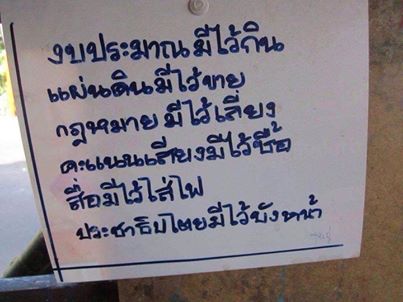 งบประมาณมีไว้กิน
แผ่นดินมีไว้ขาย
กฎหมายมีไว้เลี่ยง
คะแนนเสียงมีไว้ซื้อ
สื่อมีไว้ใส่ไฟ
ประชาธิปไตยมีไว้บังหน้า